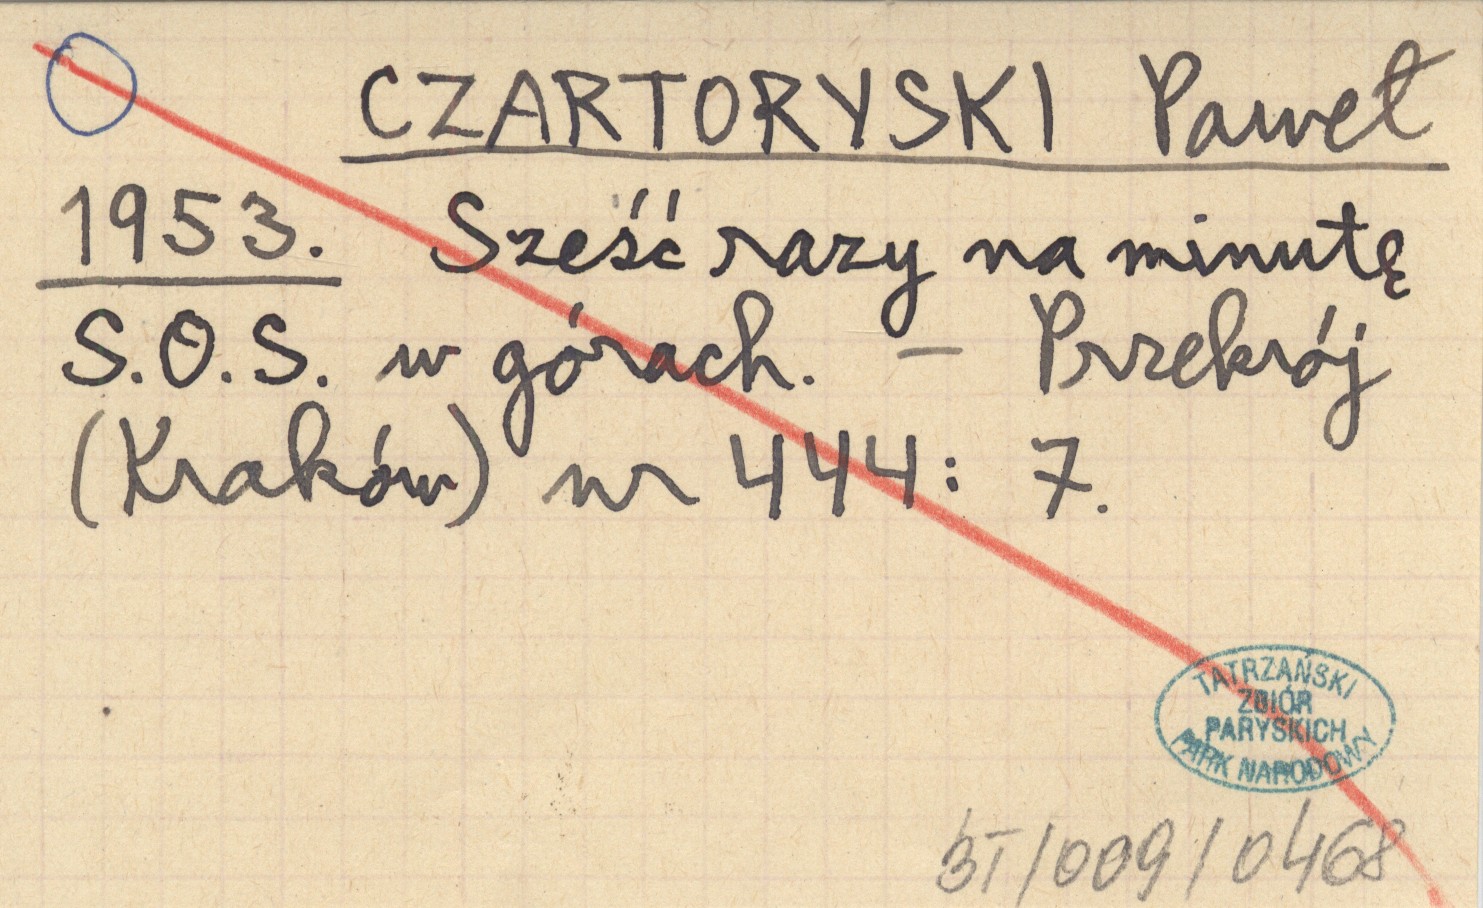 CZARTORYSKI Paweł
1953. Sześć razy na minutę
S.O.S. w górach. – Przekrój
(Kraków) nr 444: 7.
TATRZAŃSKI
ZBIÓR
PARYSKICH
PARK NARODOWY
BT/009/0468